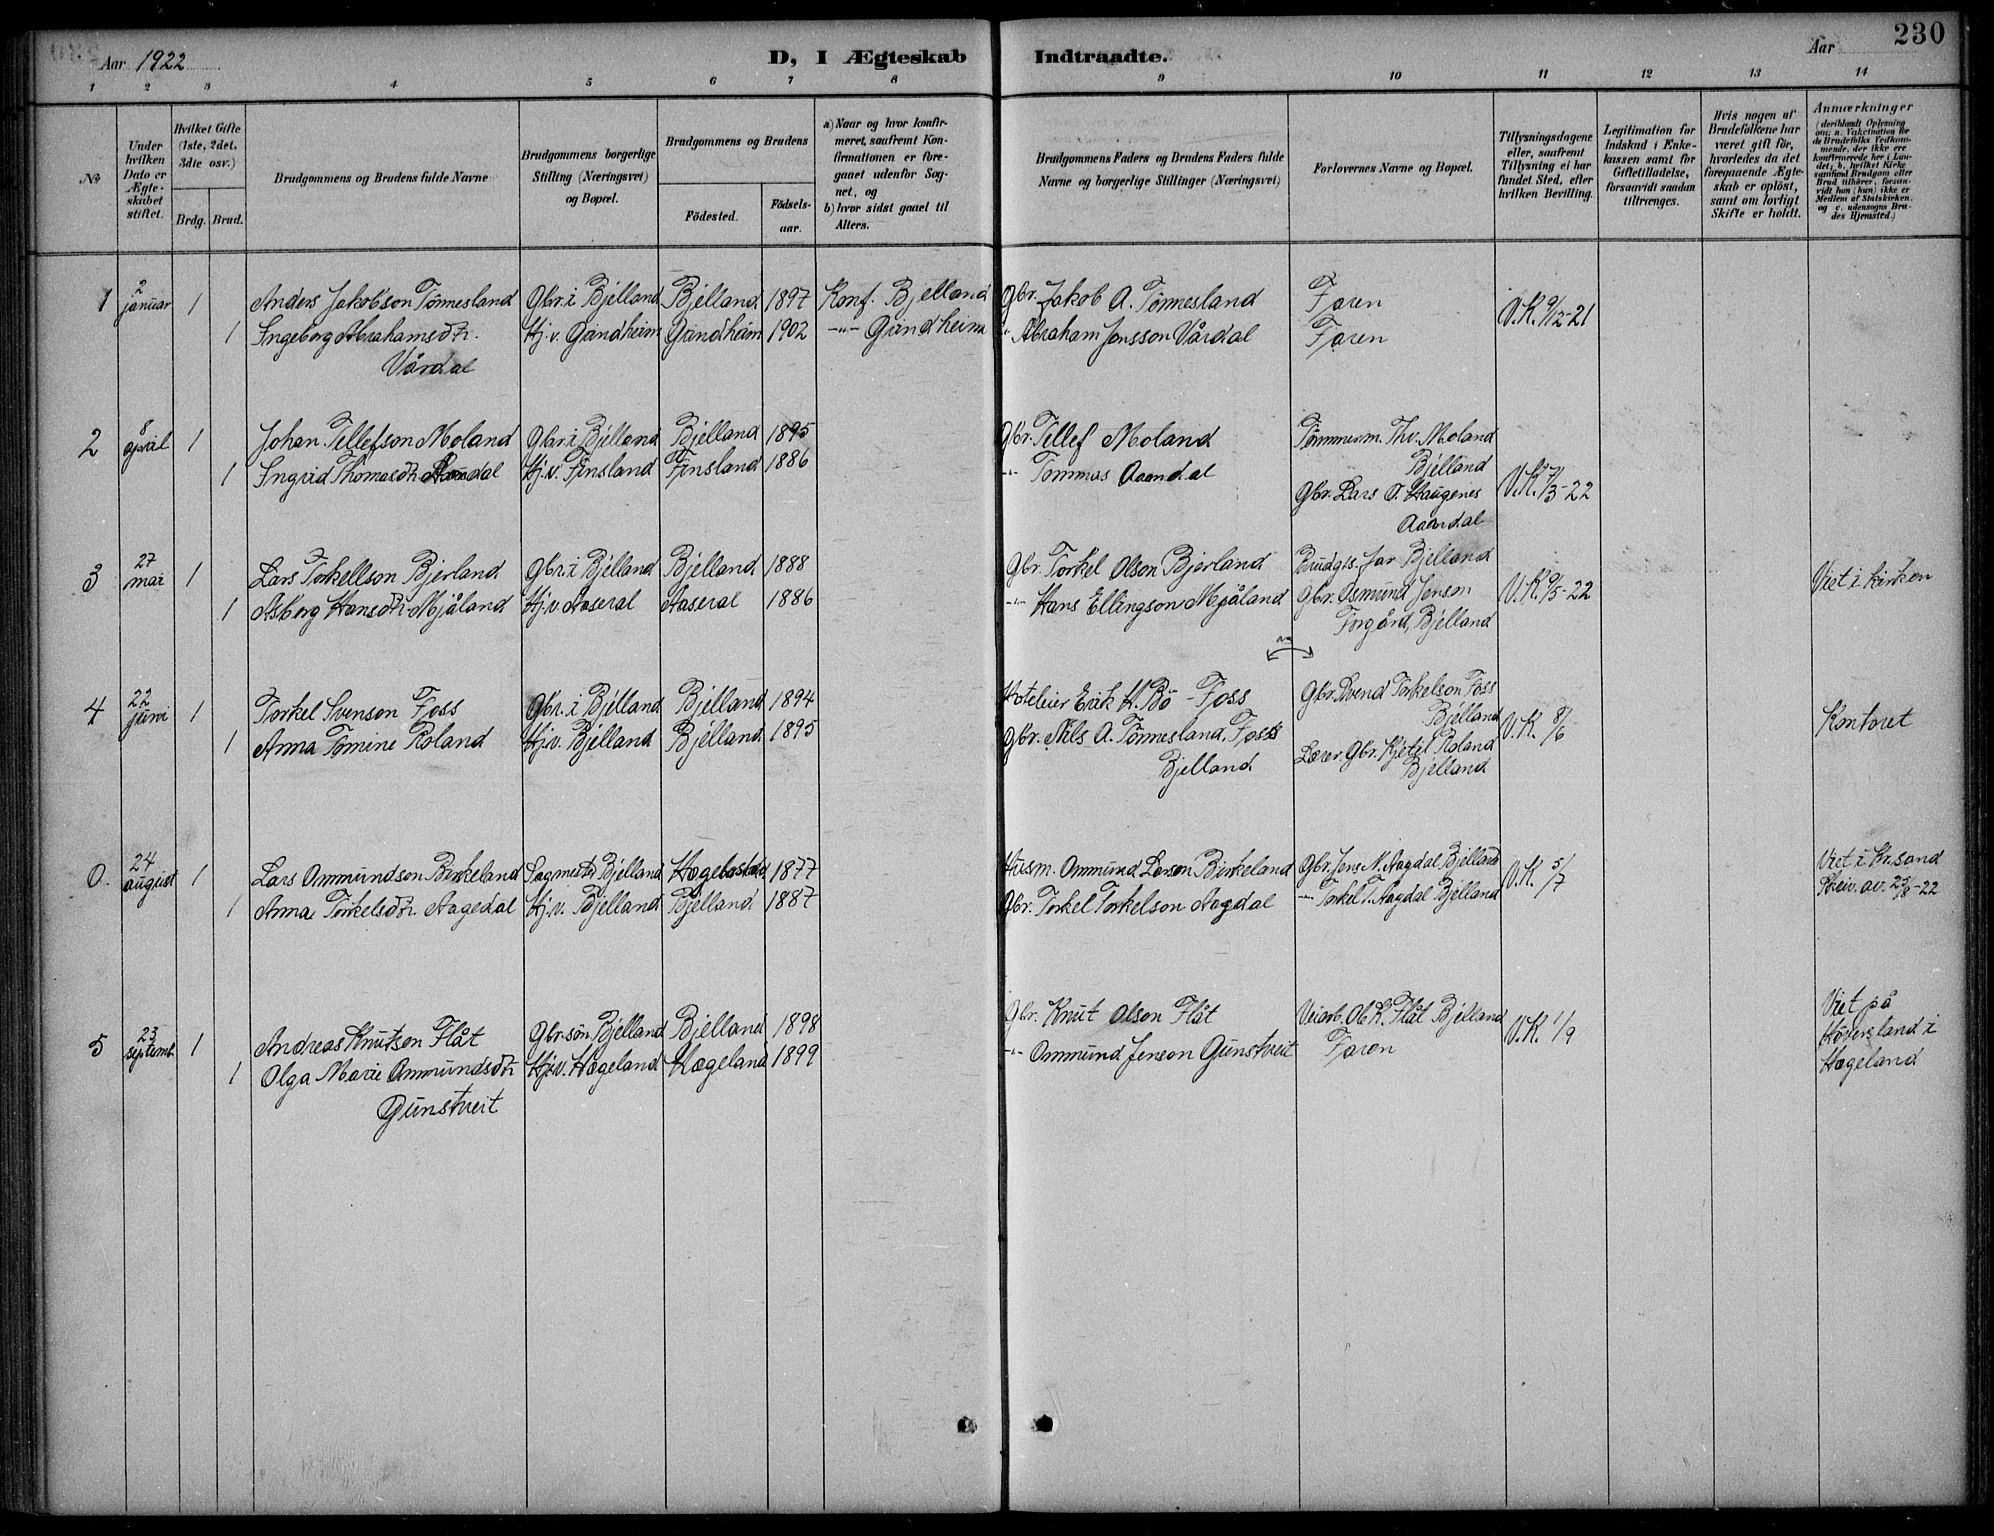 230
Aar 1922
D, I Ægteskab
Indtraadte.
Aar
1 2 3 4 5 6 7 8 9 10 11 12 13 14
No
Under
hvilken
Dato er
Ægte-
skabet
stiftet.
Hvilket Gifte
(1ste, 2det,
3die osv.)
Brdg. Brud.
Brudgommens og Brudens fulde Navne
Brudgommens borgerlige
Stilling (Næringsvei)
og Bopæl.
Brudgommens og Brudens
Fødested.
Fødsels-
aar.
a) Naar og hvor konfir-
meret, saafremt Kon-
firmationen er fore-
gaaet udenfor Sog-
net, og
b) hvor sidst gaaet til
Alters.
Brudgommens Faders og Brudens Faders fulde
Navne og borgerlige Stillinger (Næringsvei)
Forlovernes Navne og Bopæl.
Tillysningsdagene
eller, saafremt
Tillysning ei har
fundet Sted, efter
hvilken Bevilling.
Legitimation for
Indskud i Enke-
kassen samt for
Giftetilladelse,
forsaavidt saadan
tiltrænges.
Hvis nogen af
Brudefolkene har
været gift før,
hvorledes da det
foregaaende Ægte-
skab er opløst,
samt om lovligt
Skifte er holdt.
Anmærkninger
(deriblandt Oplysning
om: a. Vakcination for
de Brudefolks Vedkom-
mende, der ikke ere
konfirmerede her i Lan-
det; b. hvilket Kirke
samfund Brudgom eller
Brud tilhører, forsaa-
vidt han (hun) ikke er
Medlem af Statskirken,
og c. udensogns Bru-
des Hjemsted.)
1 2 januar 1 Anders Jakobson Tönnesland Gbr. i Bjelland Bjelland 1897 Konf. Bjelland Gbr. Jakob A. Tönnesland Faren V.K. 9/12-21
1 Ingeborg Abrahamsdtr. Hj.v. Grindheim Grindheim 1902 -"- Grindheim " Abraham Jonsson Vårdal Faren
Vårdal
2 8 april 1 Johan Tellefson Moland Gbr. i Bjelland Bjelland 1895 Gbr. Tellef Moland Tömmerm. Thv. Moland
Bjelland
1 Ingrid Thomasdtr Hj.v. Finsland Finsland 1886 -"- Tommas Aamdal Gbr. Lars O. Haugenes V.K. 7/3-22
Aamdal
3 27 mai 1 Lars Torkellson Bjerland Gbr. i Bjelland Bjelland 1888 Gbr. Torkel Olson Bjerland Brudgs. far Bjelland Viet i kirken
1 Asborg Hansdtr Mjåland Hj.v. Aaseral Aaseral 1886 -"- Hans Ellingson Mjåland Gbr. Osmund Jenson V.K. 9/5-22
Forgård, Bjelland
4 22 juni 1 Torkel Svenson Foss Gbr. i Bjelland Bjelland 1894 Hoteleier Erik K. Bö - Foss Gbr. Svend Torkelson Foss
Bjelland V.K. 8/6 Kontoret
1 Anna Tomine Roland Hj.v. Bjelland Bjelland 1895 Gbr. Nils A. Tönnesland, Foss Lærer, Gbr. Kjetil Roland
Bjelland Bjelland
0. 24 august 1 Lars Ommundson Birkeland Sagmester Bjelland Hægebostad 1877 Husm. Ommund Larson Birkeland Gbr. Jens N. Aagdal Bjelland V.K. 5/7 Viet i Kr.sand
1 Anna Torkelsdtr. Aagedal Hj.v. Bjelland Bjelland 1887 Gbr. Torkel Torkelson Aagdal -"- Torkel T. Aagdal Bjelland Skriv. av. 25/8-22
5 23 septemb. 1 Andreas Knutson Flåt Gbr.sön Bjelland Bjelland 1898 Gbr. Knut Olson Flåt Veiarb. Ob K. Flåt Bjelland V.K. 1/9 Viet på
1 Olga Marie Ommundsdtr Hj.v. Hægeland Hægeland 1899 -"- Ommund Jenson Gunstveit Faren Höversland i
Gunstveit Hægeland